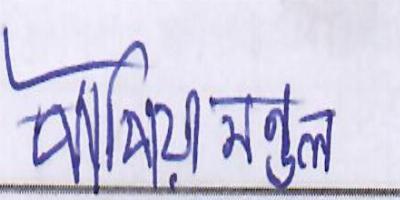 পাপিয়া মণ্ডল